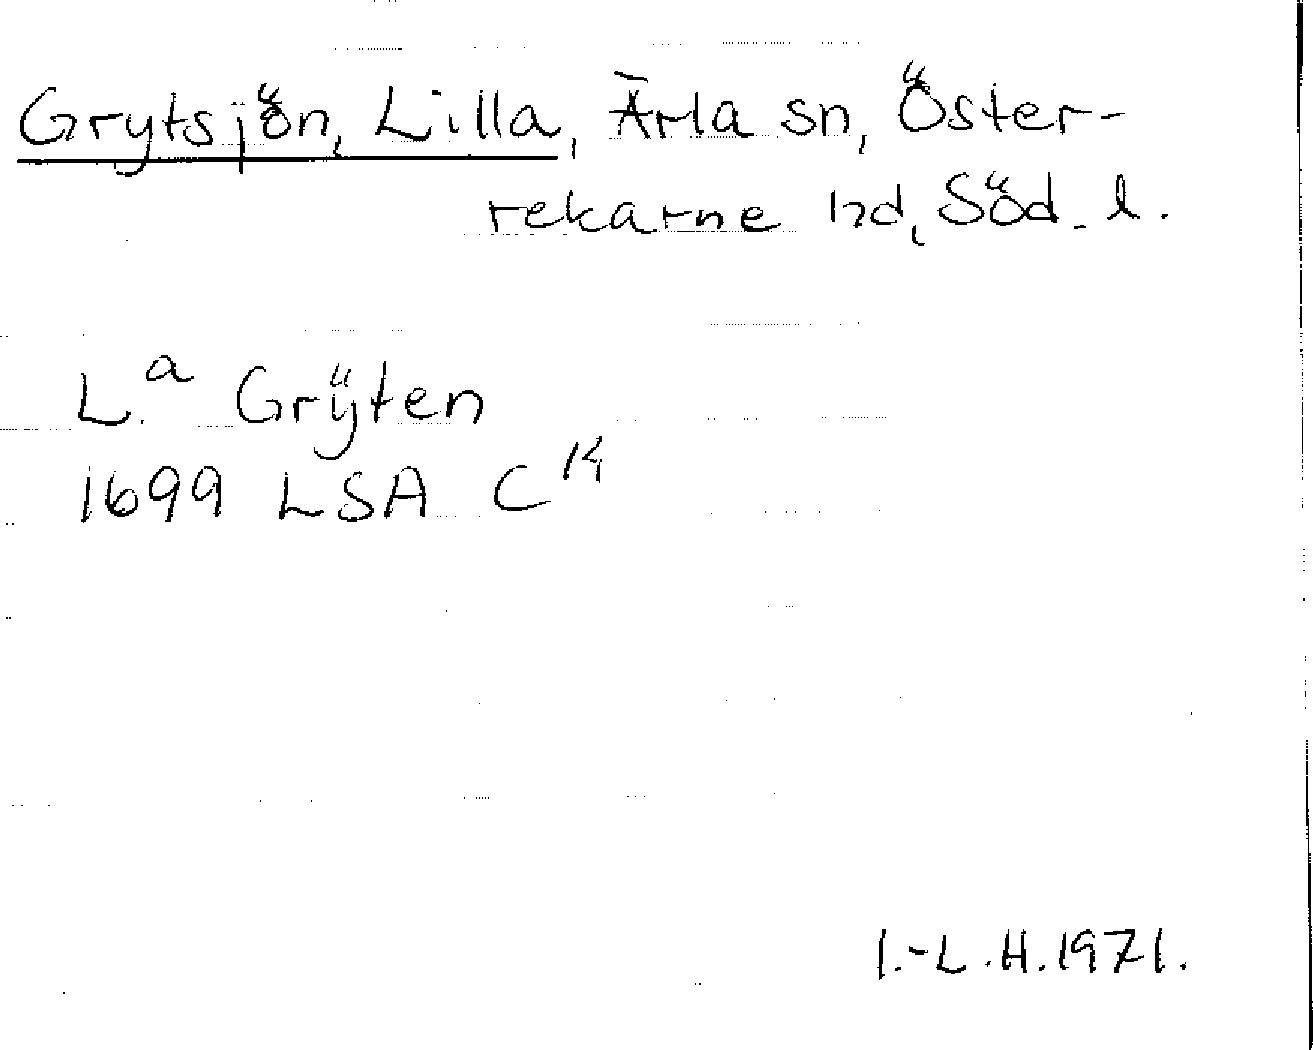 Grytsjön, Lilla, Ärla sn, Öster-
rekarne hd, Söd. l.
L.a Grÿten
1699 LSA C14
I.-L.H.1971.